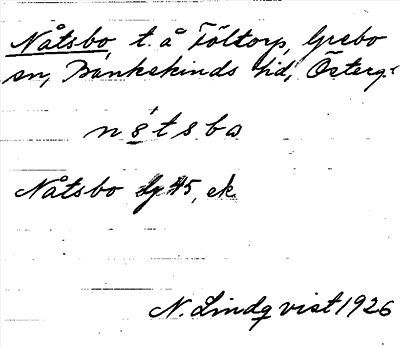 Nåtsbo, t. å Töltorp, Grebo
sn, Bankekinds hd, Österg.
Nåtsbo 45, ek.
N. Lindqvist 1926